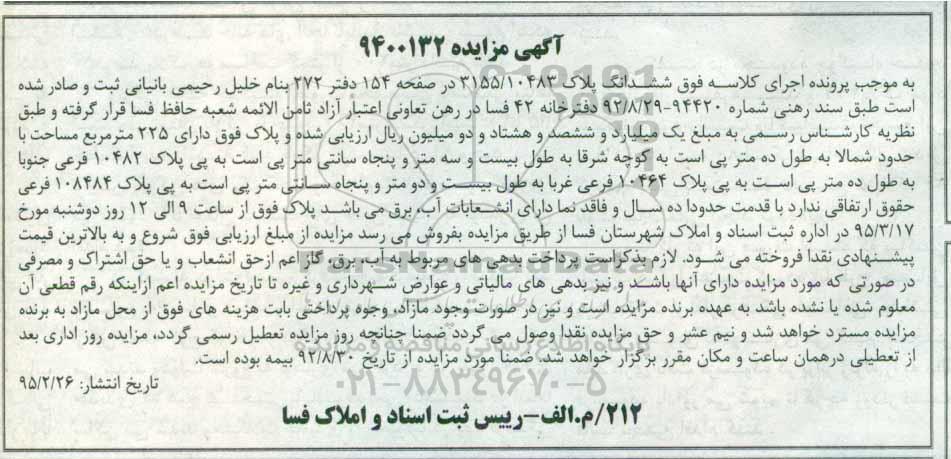 آگهی مزایده ۹۴۰۰۱۳۲
به موجب پرونده اجرای کلاسه فوق ششدانگ پلاک ۳۱۵۵/۱۰۴۸۳ در صفحه ۱۵۴ دفتر ۲۷۲ بنام خلیل رحیمی بانیانی ثبت و صادر شده
است طبق سند رهنی شماره ۹۴۴۲۰-۹۲/۸/۲۹ دفترخانه ۴۲ فسا در رهن تعاونی اعتبار آزاد ثامن الائمه شعبه حافظ فسا قرار گرفته و طبق
نظریه کارشناس رسمی به مبلغ یک میلیارد و ششصد و هشتاد و دو میلیون ریال ارزیابی شده و پلاک فوق دارای ۲۲۵ مترمربع مساحت با
حدود شمالا به طول ده متر پی است به کوچه شرقا به طول بیست و سه متر و پنجاه سانتی متر پی است به پی پلاک ۱۰۴۸۲ فرعی جنوبا
به طول ده متر پی است به پی پلاک ۱۰۴۶۴ فرعی غربا به طول بیست و دو متر و پنجاه سانتی متر پی است به پی پلاک ۱۰۸۴۸۴ فرعی
حقوق ارتفاقی ندارد با قدمت حدودا ده سال و فاقد نما دارای انشعابات آب، برق می باشد پلاک فوق از ساعت ۹ الی ۱۲ روز دوشنبه مورخ
۹۵/۳/۱۷ در اداره ثبت اسناد و املاک شهرستان فسا از طریق مزایده بفروش می رسد مزایده از مبلغ ارزیابی فوق شروع و به بالاترین قیمت
پیشنهادی نقدا فروخته می شود. لازم بذکراست پرداخت بدهی های مربوط به آب، برق، گاز اعم ازحق انشعاب و یا حق اشتراک و مصرفی
در صورتی که مورد مزایده دارای آنها باشد و نیز بدهی های مالیاتی و عوارض شهرداری و غیره تا تاریخ مزایده اعم ازاینکه رقم قطعی آن
معلوم شده یا نشده باشد به عهده برنده مزایده است و نیز در صورت وجود مازاد، وجوه پرداختی بابت هزینه های فوق از محل مازاد به برنده
مزایده مسترد خواهد شد و نیم عشر و حق مزایده نقدا وصول می گردد ضمنا چنانچه روز مزایده تعطیل رسمی گردد، مزایده روز اداری بعد
از تعطیلی درهمان ساعت و مکان مقرر برگزار خواهد شد، ضمنا مورد مزایده از تاریخ ۹۲/۸/۳۰ بیمه بوده است.
تاریخ انتشار: ۹۵/۲/۲۶
۲۱۲/م.الف-رییس ثبت اسناد و املاک فسا
ParsNamadData
پایگاه اطلاع رسانی مناقصه و مزایده
۰۲۱-۸۸۳۴۹۶۷۰-۵